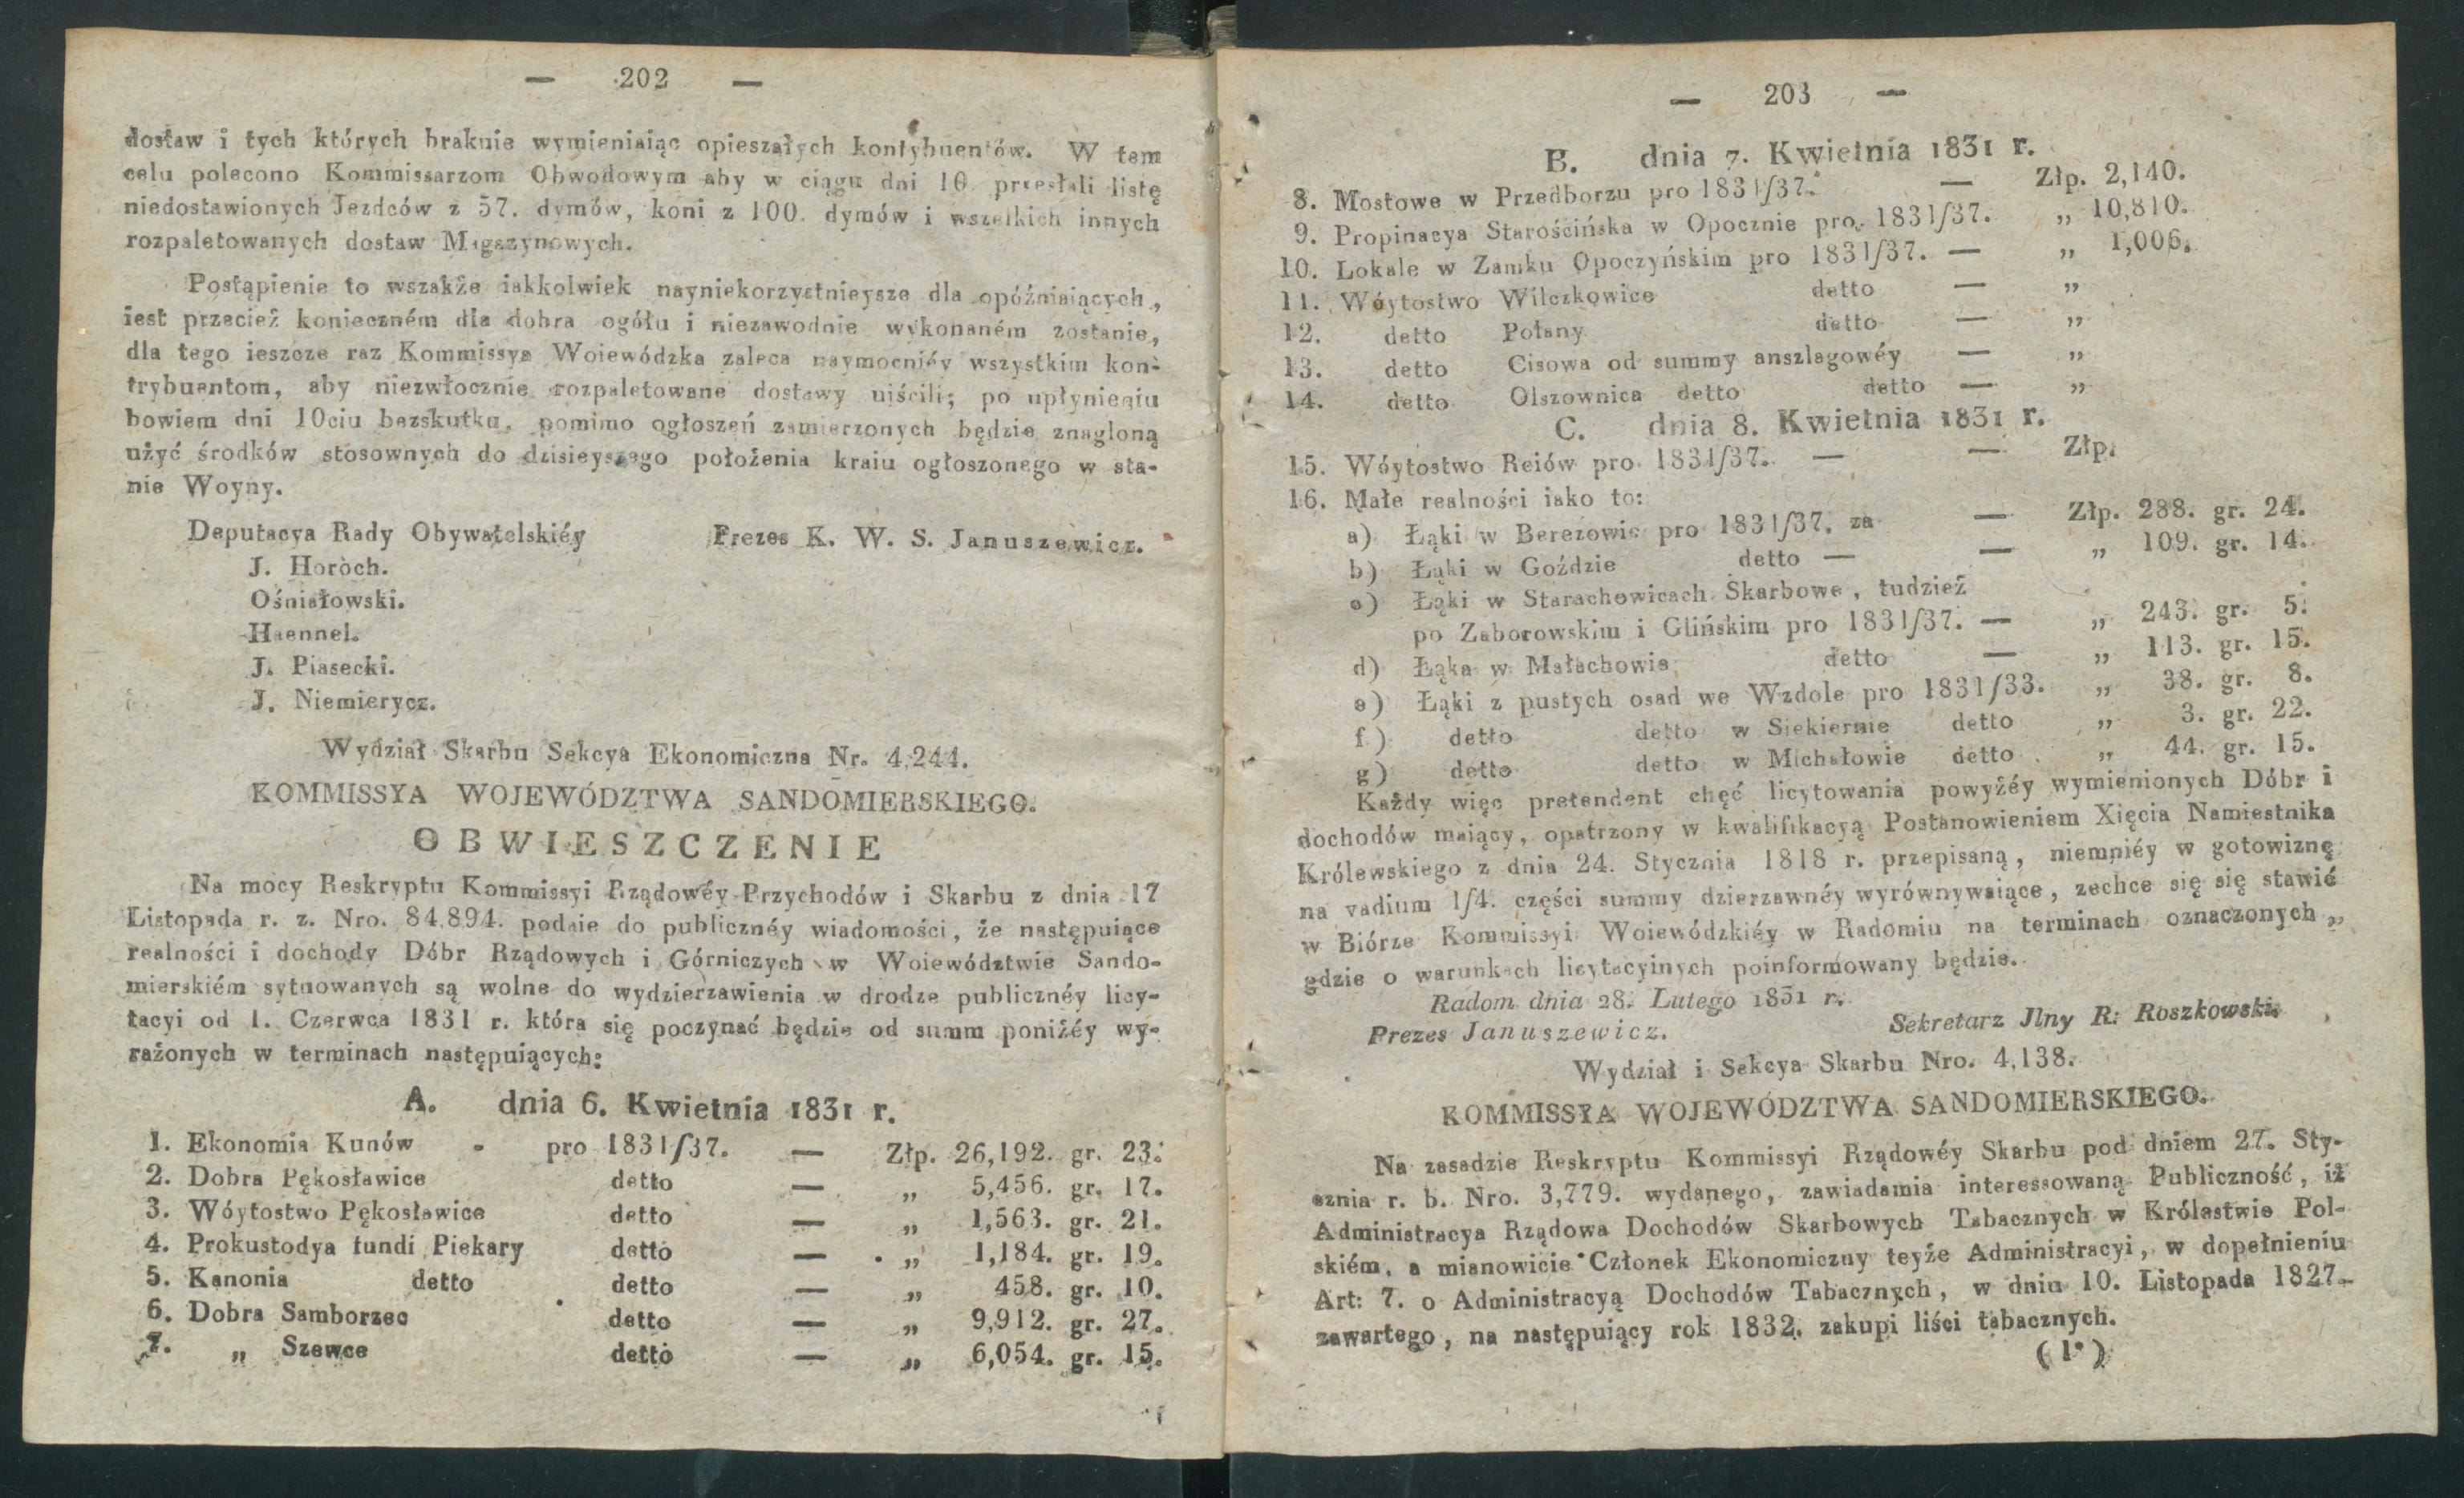 — 202 —
dostaw i tych których braknie wymieniaiąc opieszałych kontybuentów. W tem
celu polecono Kommissarzom Obwodowym aby w ciągu dni 10 przesłali listę
niedostawionych Jezdców z 57. dymów, koni z 100. dymów i wszelkich innych
rozpaletowanych dostaw Magazynowych.
Postąpienie to wszakże iakkolwiek nayniekorzystnieysze dla opóźniaiących,
iest przecież konieczném dla dobra ogółu i niezawodnie wykonaném zostanie,
dla tego ieszcze raz Kommissya Woiewódzka zaleca naymocniéy wszystkim kon-
trybuentom, aby niezwłocznie rozpaletowane dostawy uiścili; po upłynieniu
bowiem dni 10ciu bezskutku, pomimo ogłoszeń zamierzonych będzie znagloną
użyć środków stosownych do dzisieyszego położenia kraiu ogłoszonego w sta-
nie Woyny.
Deputacya Rady Obywatelskiéy Prezes K. W. S. Januszewicz.
J. Horòch.
Ośniałowski.
Haennel.
J. Piasecki.
J. Niemierycz.
Wydział Skarbu Sekcya Ekonomiczna Nr. 4,244.
KOMMISSYA WOJEWÓDZTWA SANDOMIERSKIEGO.
OBWIESZCZENIE
Na mocy Reskryptu Kommissyi Rządowéy Przychodów i Skarbu z dnia 17
Listopada r. z. Nro. 84,894. podaie do publicznéy wiadomości, że następuiące
realności i dochody Dóbr Rządowych i Górniczych w Woiewództwie Sando-
mierskiém sytuowanych są wolne do wydzierzawienia w drodze publicznéy licy-
tacyi od 1. Czerwca 1831 r. która się poczynać będzie od summ poniżéy wy-
rażonych w terminach następuiących:
A. dnia 6. Kwietnia 1831 r.
1. Ekonomia Kunów - pro 1831/37. — Złp. 26,192. gr. 23.
2. Dobra Pękosławice detto — „ 5,456. gr. 17.
3. Wóytostwo Pękosławice detto — „ 1,563. gr. 21.
4. Prokustodya fundi Piekary detto — „ 1,184. gr. 19.
5. Kanonia detto detto — „ 458. gr. 10.
6. Dobra Samborzec detto — „ 9,912. gr. 27.
7. „ Szewce detto — „ 6,054. gr. 15.
— 203 —
B. dnia 7. Kwietnia 1831 r.
8. Mostowe w Przedborzu pro 1831/37. — Złp. 2,140.
9. Propinacya Starościńska w Opocznie pro. 1831/37. „ 10,810.
10. Lokale w Zamku Opoczyńskim pro 1831/37. — „ 1,006.
11. Wóytostwo Wilczkowice detto — „
12. detto Połany detto — „
13. detto Cisowa od summy anszlagowéy — „
14. detto Olszownica detto detto — „
C. dnia 8. Kwietnia 1831 r.
15. Wóytostwo Reiów pro 1831/37. — — Złp.
16. Małe realności iako to:
a) Łąki w Berezowie pro 1831/37. za — Złp. 288. gr. 24.
b) Łąki w Goździe detto — — „ 109. gr. 14.
c) Łąki w Starachowicach Skarbowe, tudzież
po Zaborowskim i Glińskim pro 1831/37. — „ 243. gr. 5.
d) Łąka w Małachowie detto — „ 113. gr. 15.
e) Łąki z pustych osad we Wzdole pro 1831/33. „ 38. gr. 8.
f) detto detto w Siekiernie detto „ 3. gr. 22.
g) detto detto w Michałowie detto „ 44. gr. 15.
Każdy więc pretendent chęć licytowania powyżéy wymienionych Dóbr i
dochodów maiący, opatrzony w kwalifikacyą Postanowieniem Xięcia Namiestnika
Królewskiego z dnia 24. Stycznia 1818 r. przepisaną, niemniéy w gotowiznę
na vadium 1/4. części summy dzierzawnéy wyrównywaiące, zechce się się stawić
w Biórze Kommissyi Woiewódzkiéy w Radomiu na terminach oznaczonych,
gdzie o warunkach licytacyinych poinformowany będzie.
Radom dnia 28. Lutego 1831 r.
Prezes Januszewicz. Sekretarz Jlny R: Roszkowski.
Wydział i Sekcya Skarbu Nro. 4,138.
KOMMISSYA WOJEWÓDZTWA SANDOMIERSKIEGO.
Na zasadzie Reskryptu Kommissyi Rządowéy Skarbu pod dniem 27. Sty-
cznia r. b. Nro. 3,779. wydanego, zawiadamia interessowaną Publiczność, iż
Administracya Rządowa Dochodów Skarbowych Tabacznych w Królestwie Pol-
skiém, a mianowicie Członek Ekonomiczny teyże Administracyi, w dopełnieniu
Art: 7. o Administracyą Dochodów Tabacznych, w dniu 10. Listopada 1827.
zawartego, na następuiący rok 1832. zakupi liści tabacznych.
(1*)